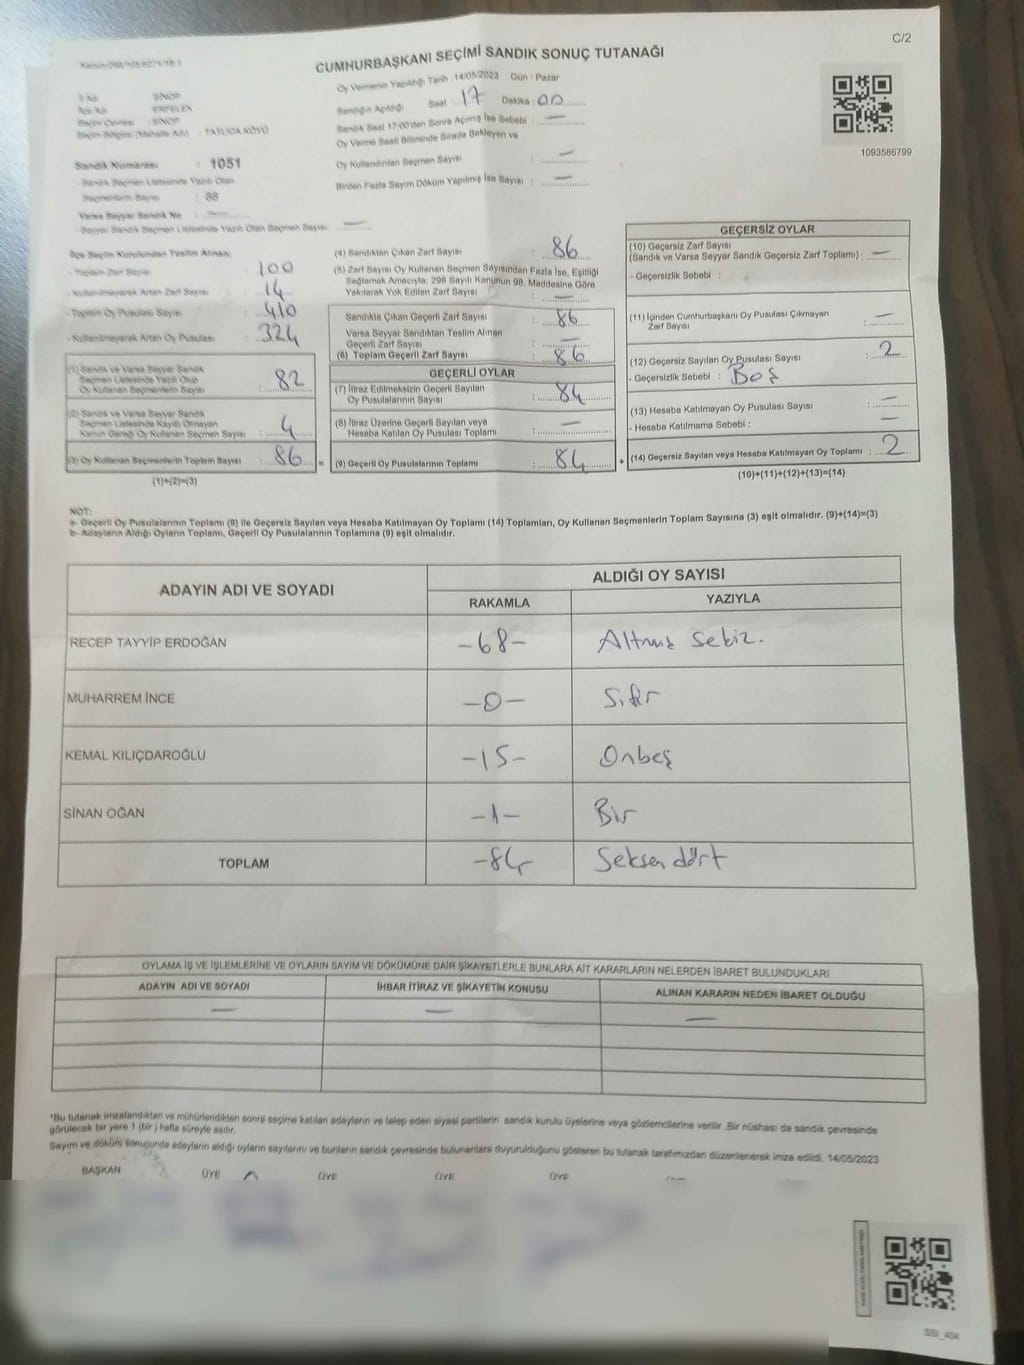 C/2
Kanun/298/103/6271/18-1
CUMHURBAŞKANI SEÇİMİ SANDIK SONUÇ TUTANAĞI
İl Adı : SİNOP
İlçe Adı : ERFELEK
Seçim Çevresi : SİNOP
Seçim Bölgesi (Mahalle Adı) : TATLICA KÖYÜ
Sandık Numarası : 1051
- Sandık Seçmen Listesinde Yazılı Olan
Seçmenlerin Sayısı : 88
Varsa Seyyar Sandık No : —
- Seyyar Sandık Seçmen Listesinde Yazılı Olan Seçmen Sayısı : —
Oy Vermenin Yapıldığı Tarih : 14/05/2023 Gün : Pazar
Sandığın Açıldığı Saat : 17 Dakika : 00
Sandık Saat 17:00'den Sonra Açılmış İse Sebebi : —
Oy Verme Saati Bitiminde Sırada Bekleyen ve
Oy Kullandırılan Seçmen Sayısı : —
Birden Fazla Sayım Döküm Yapılmış İse Sayısı : —
1093586799
İlçe Seçim Kurulundan Teslim Alınan;
- Toplam Zarf Sayısı : 100
- Kullanılmayarak Artan Zarf Sayısı : 14
- Toplam Oy Pusulası Sayısı : 410
- Kullanılmayarak Artan Oy Pusulası : 324
(1) Sandık ve Varsa Seyyar Sandık
Seçmen Listesinde Yazılı Olup
Oy Kullanan Seçmenlerin Sayısı : 82
(2) Sandık ve Varsa Seyyar Sandık
Seçmen Listesinde Kayıtlı Olmayan
Kanun Gereği Oy Kullanan Seçmen Sayısı : 4
(3) Oy Kullanan Seçmenlerin Toplam Sayısı : 86
(1)+(2)=(3)
(4) Sandıktan Çıkan Zarf Sayısı : 86
(5) Zarf Sayısı Oy Kullanan Seçmen Sayısından Fazla İse, Eşitliği
Sağlamak Amacıyla; 298 Sayılı Kanunun 98. Maddesine Göre
Yakılarak Yok Edilen Zarf Sayısı : —
Sandıkta Çıkan Geçerli Zarf Sayısı : 86
Varsa Seyyar Sandıktan Teslim Alınan
Geçerli Zarf Sayısı : —
(6) Toplam Geçerli Zarf Sayısı : 86
GEÇERLİ OYLAR
(7) İtiraz Edilmeksizin Geçerli Sayılan
Oy Pusulalarının Sayısı : 84
(8) İtiraz Üzerine Geçerli Sayılan veya
Hesaba Katılan Oy Pusulası Toplamı : —
= (9) Geçerli Oy Pusulalarının Toplamı : 84
GEÇERSİZ OYLAR
(10) Geçersiz Zarf Sayısı
(Sandık ve Varsa Seyyar Sandık Geçersiz Zarf Toplamı) : —
- Geçersizlik Sebebi :
(11) İçinden Cumhurbaşkanı Oy Pusulası Çıkmayan
Zarf Sayısı : —
(12) Geçersiz Sayılan Oy Pusulası Sayısı : 2
- Geçersizlik Sebebi : Boş
(13) Hesaba Katılmayan Oy Pusulası Sayısı : —
- Hesaba Katılmama Sebebi : —
+ (14) Geçersiz Sayılan veya Hesaba Katılmayan Oy Toplamı : 2
(10)+(11)+(12)+(13)=(14)
NOT:
a- Geçerli Oy Pusulalarının Toplamı (9) ile Geçersiz Sayılan veya Hesaba Katılmayan Oy Toplamı (14) Toplamları, Oy Kullanan Seçmenlerin Toplam Sayısına (3) eşit olmalıdır. (9)+(14)=(3)
b- Adayların Aldığı Oyların Toplamı, Geçerli Oy Pusulalarının Toplamına (9) eşit olmalıdır.
ADAYIN ADI VE SOYADI ALDIĞI OY SAYISI
RAKAMLA YAZIYLA
RECEP TAYYİP ERDOĞAN -68- Altmış Sekiz.
MUHARREM İNCE -0- Sıfır
KEMAL KILIÇDAROĞLU -15- Onbeş
SİNAN OĞAN -1- Bir
TOPLAM -84 Seksen dört
OYLAMA İŞ VE İŞLEMLERİNE VE OYLARIN SAYIM VE DÖKÜMÜNE DAİR ŞİKAYETLERLE BUNLARA AİT KARARLARIN NELERDEN İBARET BULUNDUKLARI
ADAYIN ADI VE SOYADI İHBAR İTİRAZ VE ŞİKAYETİN KONUSU ALINAN KARARIN NEDEN İBARET OLDUĞU
— — —
*Bu tutanak imzalandıktan ve mühürlendikten sonra seçime katılan adayların ve talep eden siyasi partilerin sandık kurulu üyelerine veya gözlemcilerine verilir .Bir nüshası da sandık çevresinde
görülecek bir yere 1 (bir ) hafta süreyle asılır.
Sayım ve döküm sonucunda adayların aldığı oyların sayılarını ve bunların sandık çevresinde bulunanlara duyurulduğunu gösteren bu tutanak tarafımızdan düzenlenerek imza edildi. 14/05/2023
BAŞKAN ÜYE ÜYE ÜYE ÜYE
SSI_404